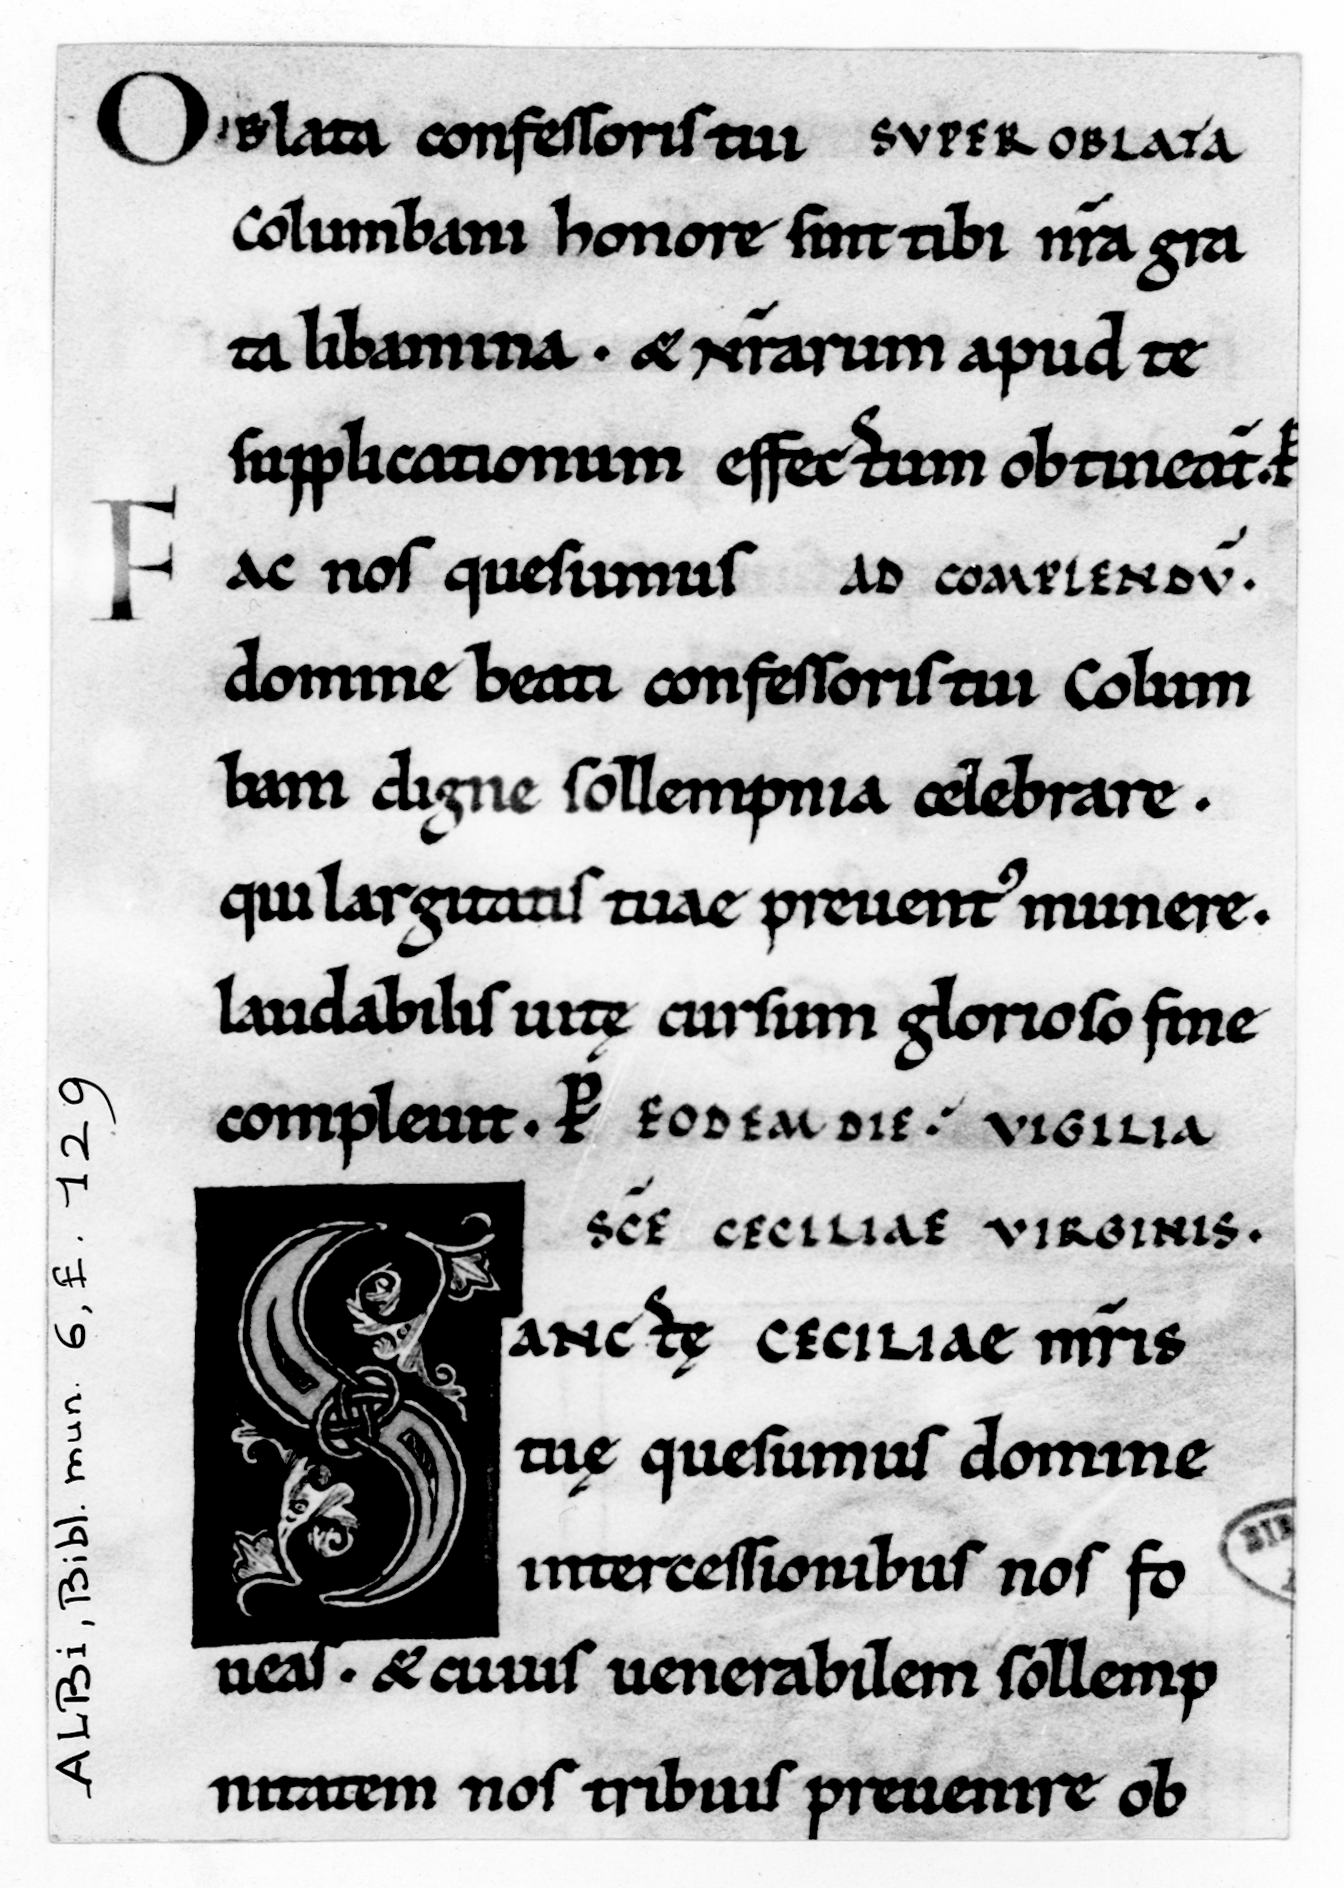 Oblata confessoris tui SUPER OBLATA
Columbani honore sint tibi nr̄a gra
ta libamina · & nr̄arum apud te
supplicationum effectum obtineat̄. P̄
Fac nos quesumus AD COMPLENDŪ.
domine beati confessoris tui Colum
bani digne sollempnia celebrare ·
qui largitatis tuae preuent᾿ munere.
laudabilis uitę cursum glorioso fine
compleuit. P̄ EODEM DIE · VIGILIA
SC̄E CECILIAE VIRGINIS.
SANCtę CECILIAE mr̄is
tuę quesumus domine
intercessionibus nos fo
ueas · & cuius uenerabilem sollemp
nitatem nos tribuis preuenire ob
ALBi, Bibl. mun. 6, f. 129
BIB